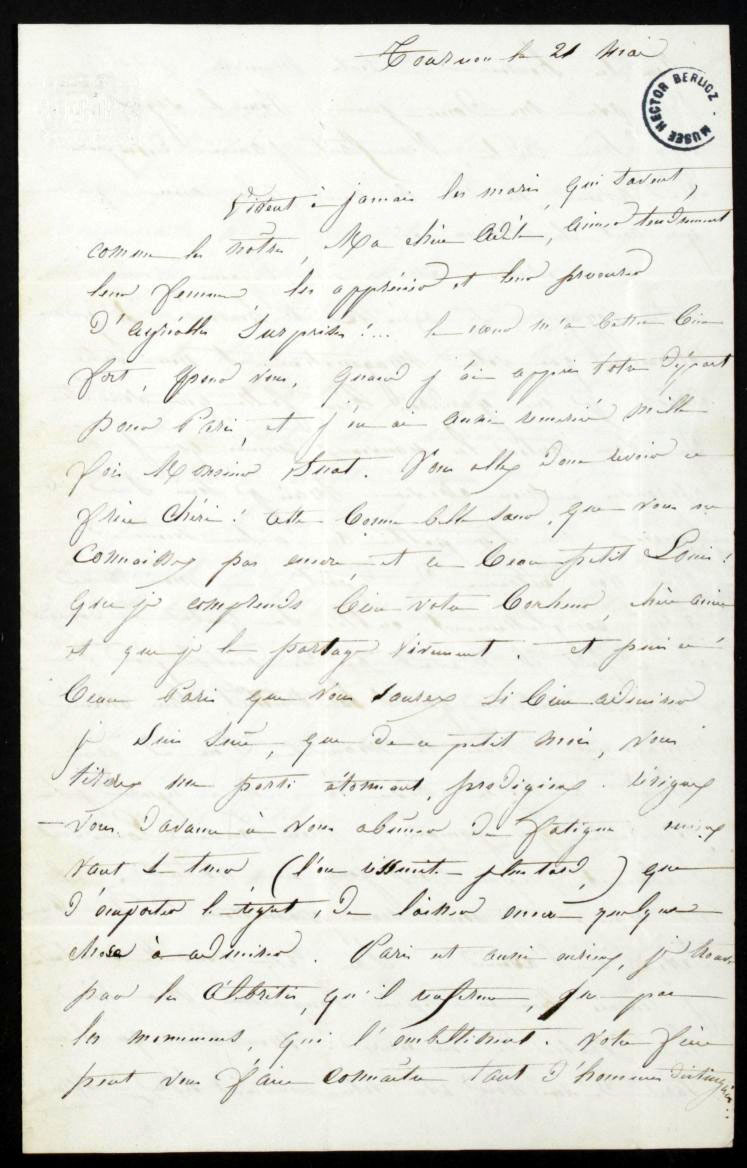 Tournon le 21 Mai
MUSEE HECTOR BERLIOZ
Vivent à jamais les maris, qui savent,
comme les nôtres, Ma chère Adèle, aimer tendrement
leur femme, les apprécier et leur procurer
d'agréables surprises!... le cœur m'a battu bien
fort, pour vous, quand j'ai appris votre départ
pour Paris, et j'en ai aussi remercié mille
fois Monsieur Suat. Vous allez donc revoir ce
frère chéri! cette bonne belle sœur, que vous ne
connaissez pas encore, et ce beau petit Louis!
que je comprends bien votre bonheur, chère amie
et que je le partage vivement. et puis ce
beau Paris que vous saurez si bien admirer
je suis sûre, que de ce petit mois, vous
tirerez un parti étonnant, prodigieux. résignez
-vous d'avance à vous abîmer de fatigue. mieux
vaut se tuer (l'on ressuscite plus tard,) que
d'emporter le regret, de laisser encore quelque
chose à admirer. Paris est aussi curieux, je trouve
par les célébrités, qu'il renferme, que par
les monuments, qui l'embellissent. Votre frère
peut vous faire connaître tant d'hommes distingués!